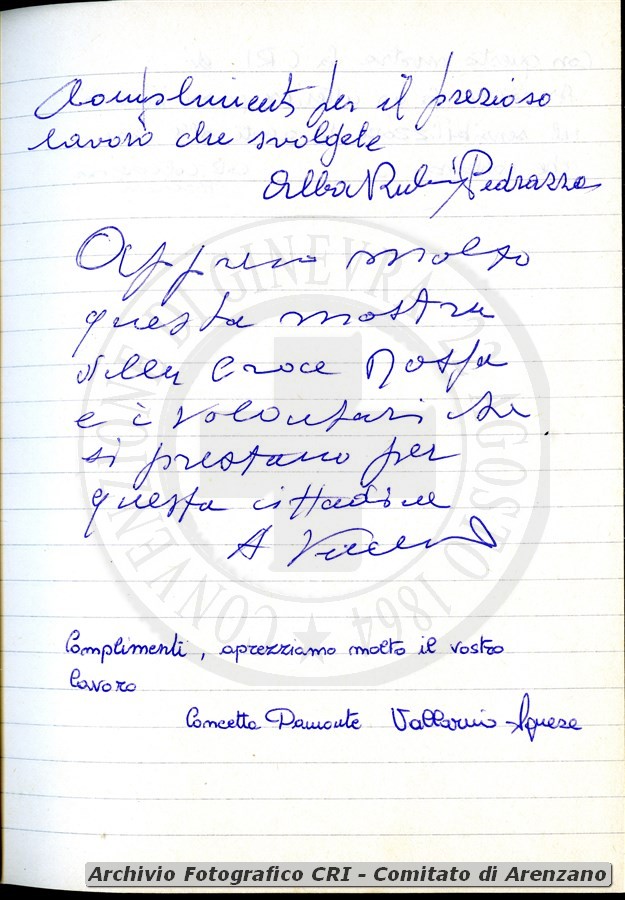 Complimenti per il prezioso
lavoro che svolgete
Alba Rubini Pedrazza
Apprezo molto
questa mostra
della Croce Rossa
e i volontari che
si prestano per
questa cittadina
A
Complimenti, aprezziamo molto il vostro
lavoro
Concetta Damonte Vallarino Agnese
CONVENZIONE DI GINEVRA 22 AGOSTO 1864
Archivio Fotografico CRI - Comitato di Arenzano